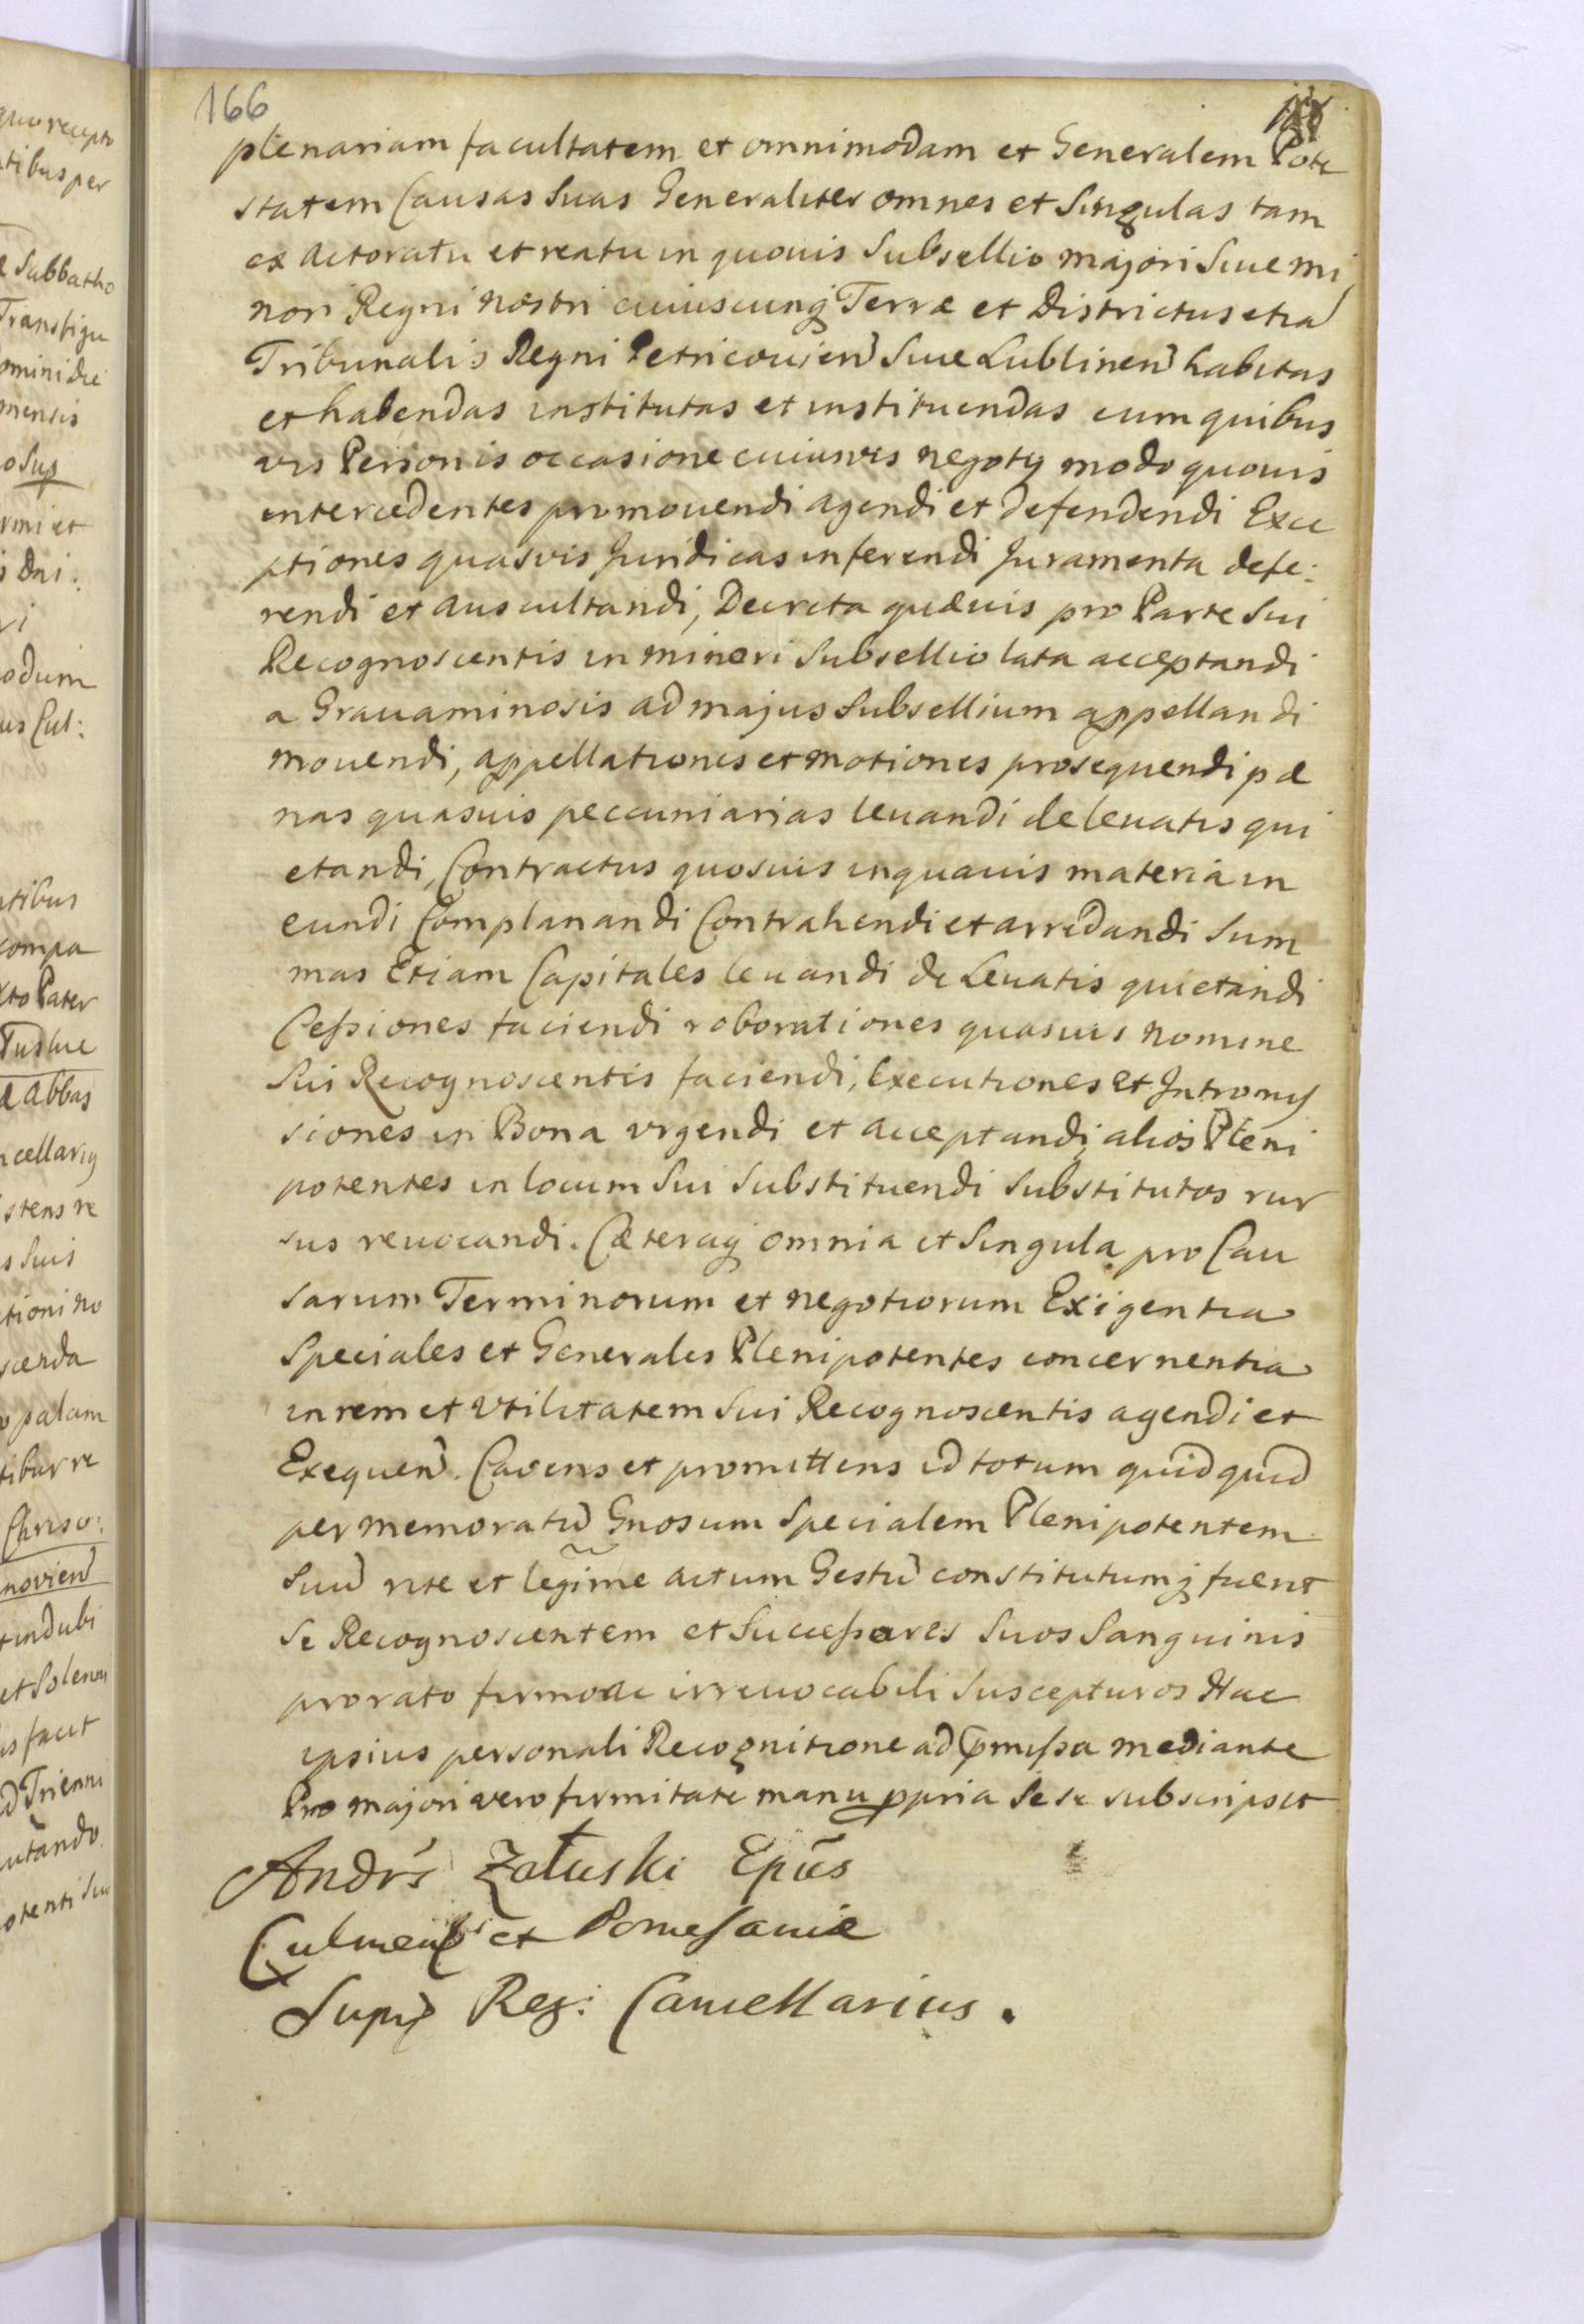 166
plenariam facultatem et omnimodam et Generalem Pote
statem Causas suas Generaliter omnes et Singulas tam
ex Actoratu et reatu in quouis Subsellio majori Siue mi
nori Regni nostri cuiuscunq Terræ et Districtus etia
Tribunalis Regni Petricouien Siue Lublinen habitas
et habendas institutas et instituendas cum quibus
vis Personis occasione cuiusvis negotij modo quouis
intercedentes promouendi agendi et defendendi Exce
ptiones quasvis Juridicas inferendi Juramenta defe:
rendi et auscultandi, Decreta quæuis pro Parte Sui
Recognoscentis in minori Subsellio lata acceptandi
a Grauaminosis ad majus Subsellium appellandi
mouendi, appellationes et motiones prosequendi pæ
nas quasuis peccuniarias leuandi de leuatis qui
etandi, Contractus quosuis in quauis materia in
eundi Complanandi Contrahendi et arrēdandi Sum
mas Etiam Capitales leuandi de Leuatis quietandi
Cessiones faciendi roborationes quasuis nomine
Sui Recognoscentis faciendi, Executiones et Intromis
siones in Bona vrgendi et acceptandi, alios Pleni
potentes in locum Sui Substituendi Substitutos rur
sus reuocandi. Cæteraq omnia et Singula pro Cau
sarum Terminorum et negotiorum Exigentia
Speciales et Generales Plenipotentes concernentia
in rem et Vtilitatem Sui Recognoscentis agendi et
Exequen. Cavens et promittens id totum quidquid
per memoratū Gnosum Specialem Plenipotentem
Suū rite et legīme actum Gestū constitutumq fuerit
Se Recognoscentem et Successores Suos Sanguinis
pro rato firmo ac irreuocabili Suscepturos Hac
ipsius personali Recognitione ad pmissa mediante
Pro majori vero firmitate manu ppria Sese subscripsit
Andrs Załuski Epūs
Culmens et Pomesaniæ
Supr Reg: Cancellarius.